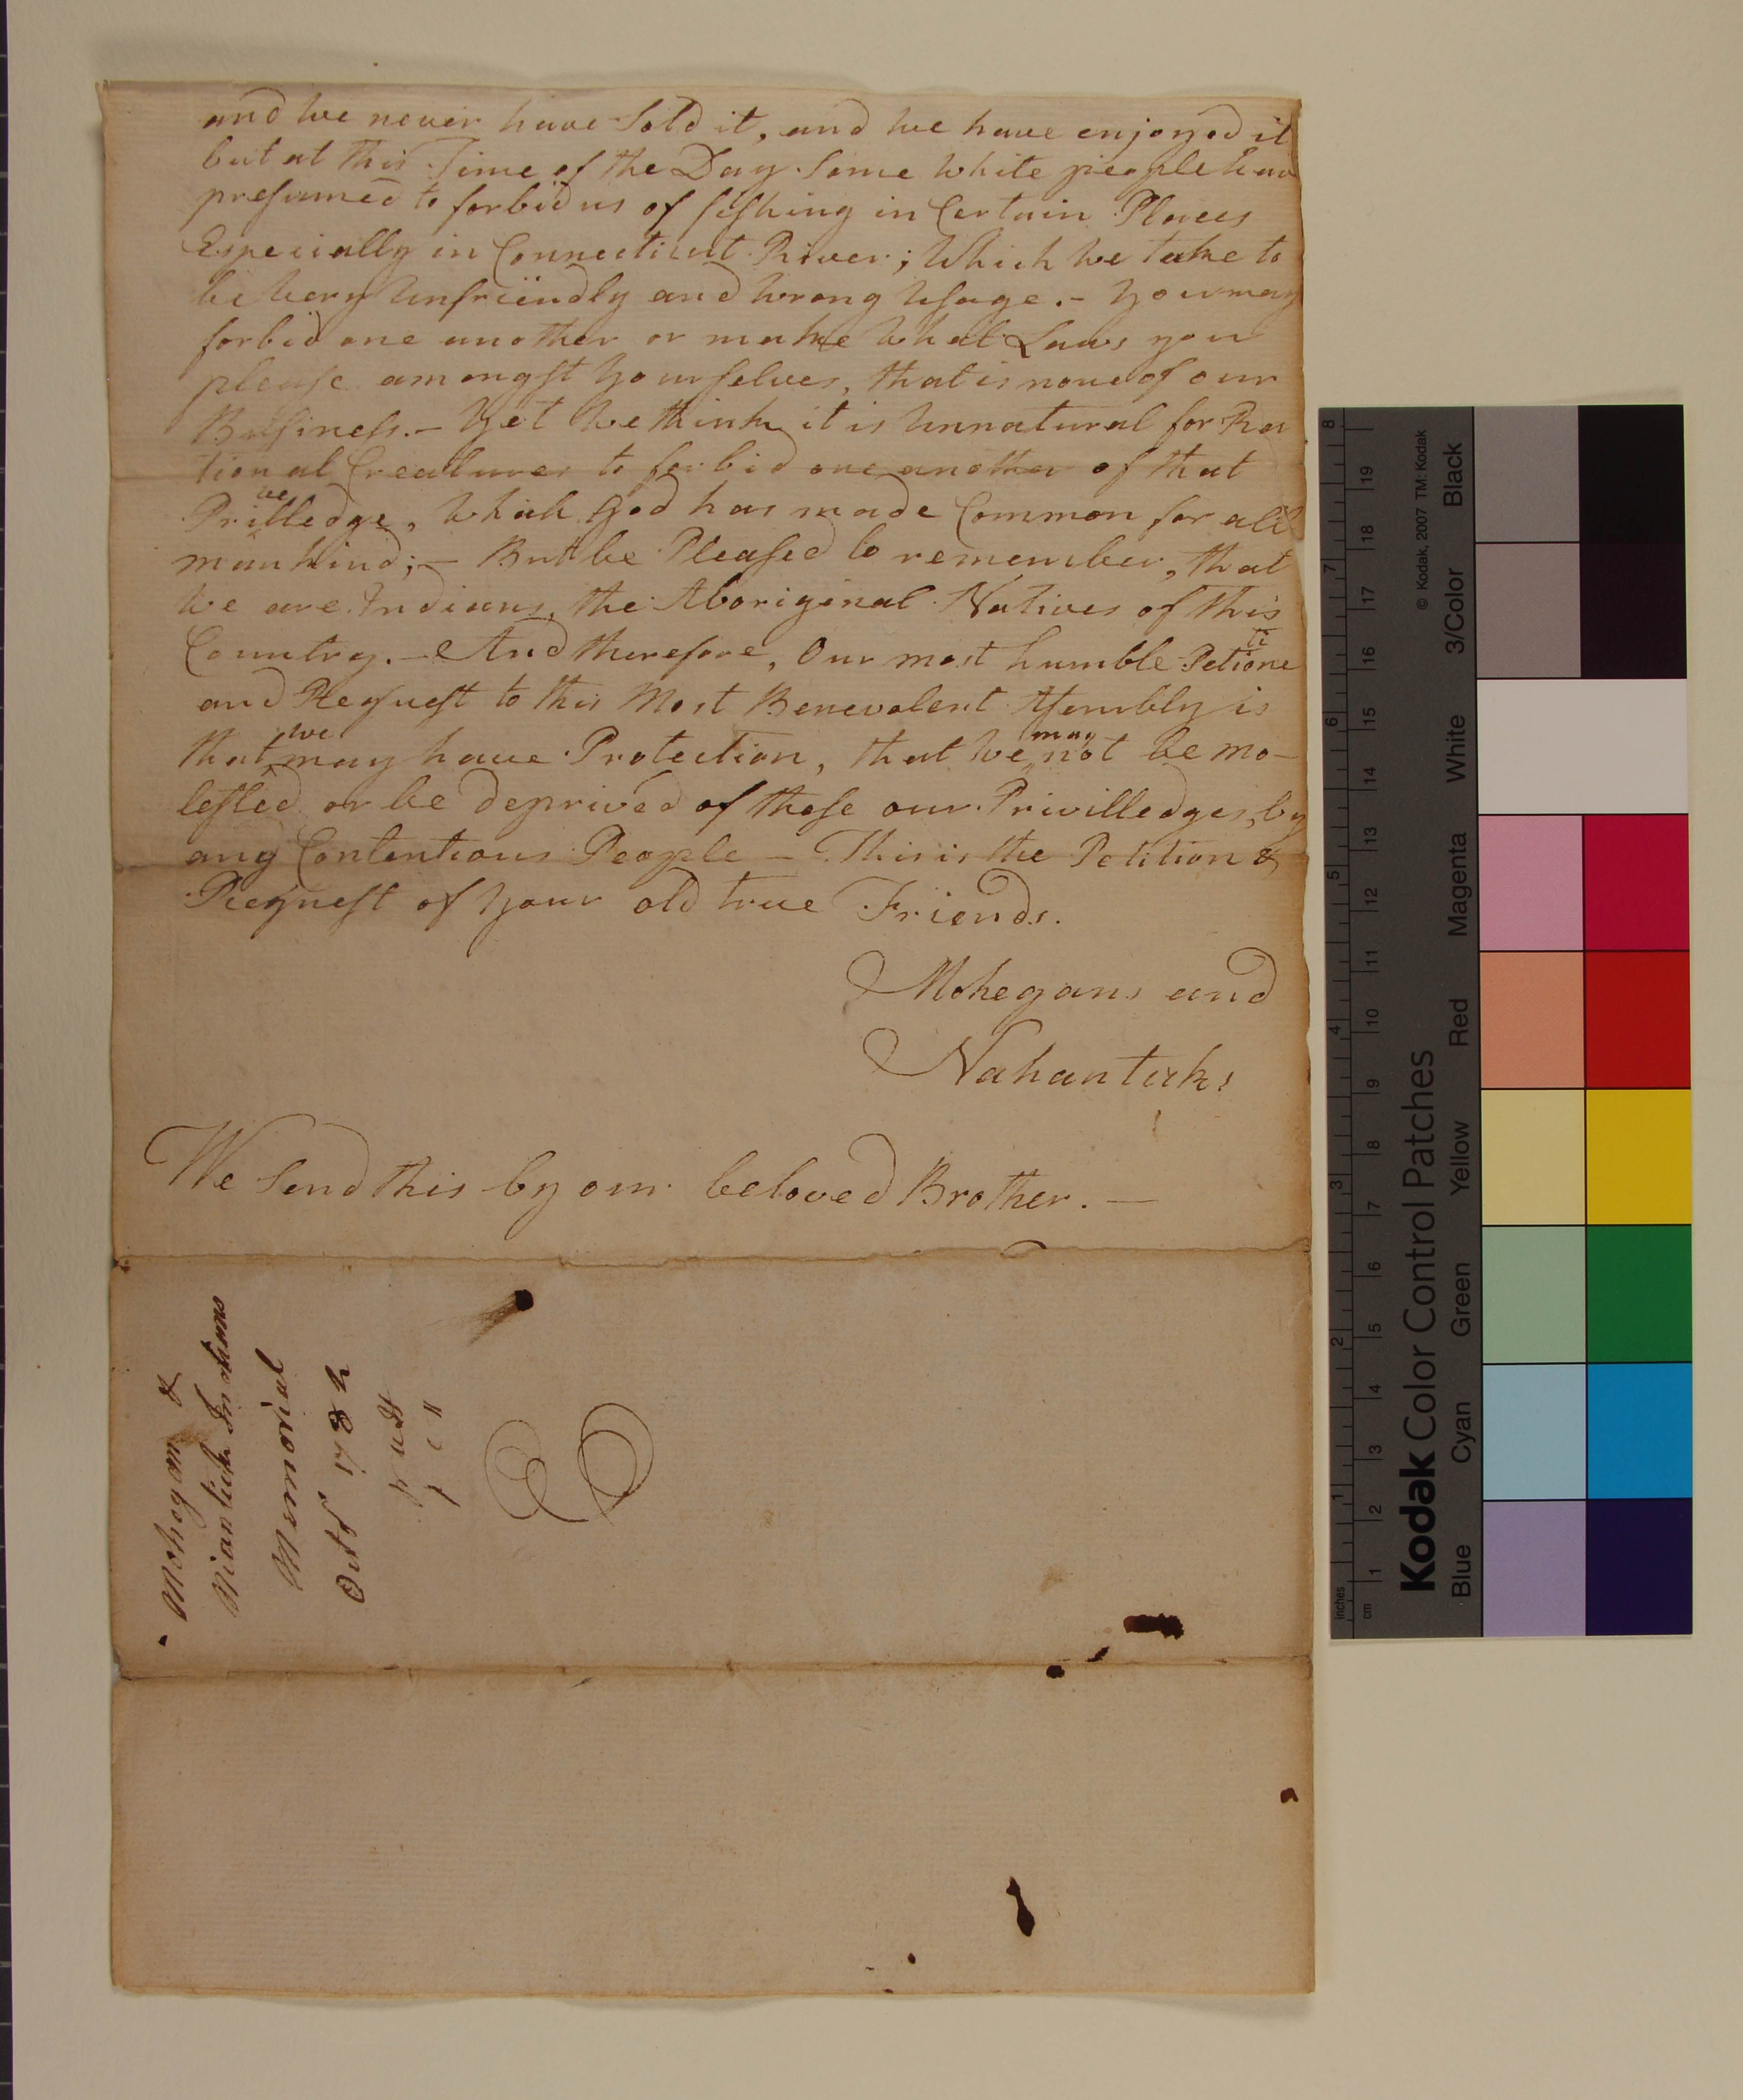 and we never have Sold it, and we have enjoyed it
but at this Time of the Day Some white people have
presumed to forbid us of fishing in Certain Places
Especially in Connecticut River; Which we take to
be very Unfriendly and wrong Usage.– You may
forbid one another or make What Laws you
please amongst Yourselves, that is none of our
Business.– Yet We think it is Unnatural for Ra
tional Creatures to forbid one another of that
ve
Priilledge, Which God has made Common for all
mankind;– But be Pleased to remember, that
we are Indians, the Aboriginal Natives of this
Country.– And therefore, Our most humble Petione
ti
and Request to this Most Benevolent Assembly is
we may
that may have Protection, that we not be mo–
lested or be deprived of these our Privilledges, by
any Contentious People – This is the Petition &
Request of Your old true Friends.
Mohegans and
Nahantuks
We Send this by our beloved Brother. –
Mohegan &
Niantick Indians
Memorial
Octr 178
Kodak Color Control Patches
© Kodak, 2007 TM: Kodak
Blue Cyan Green Yellow Red Magenta White 3/Color Black
inches 1 2 3 4 5 6 7 8
cm 1 2 3 4 5 6 7 8 9 10 11 12 13 14 15 16 17 18 19